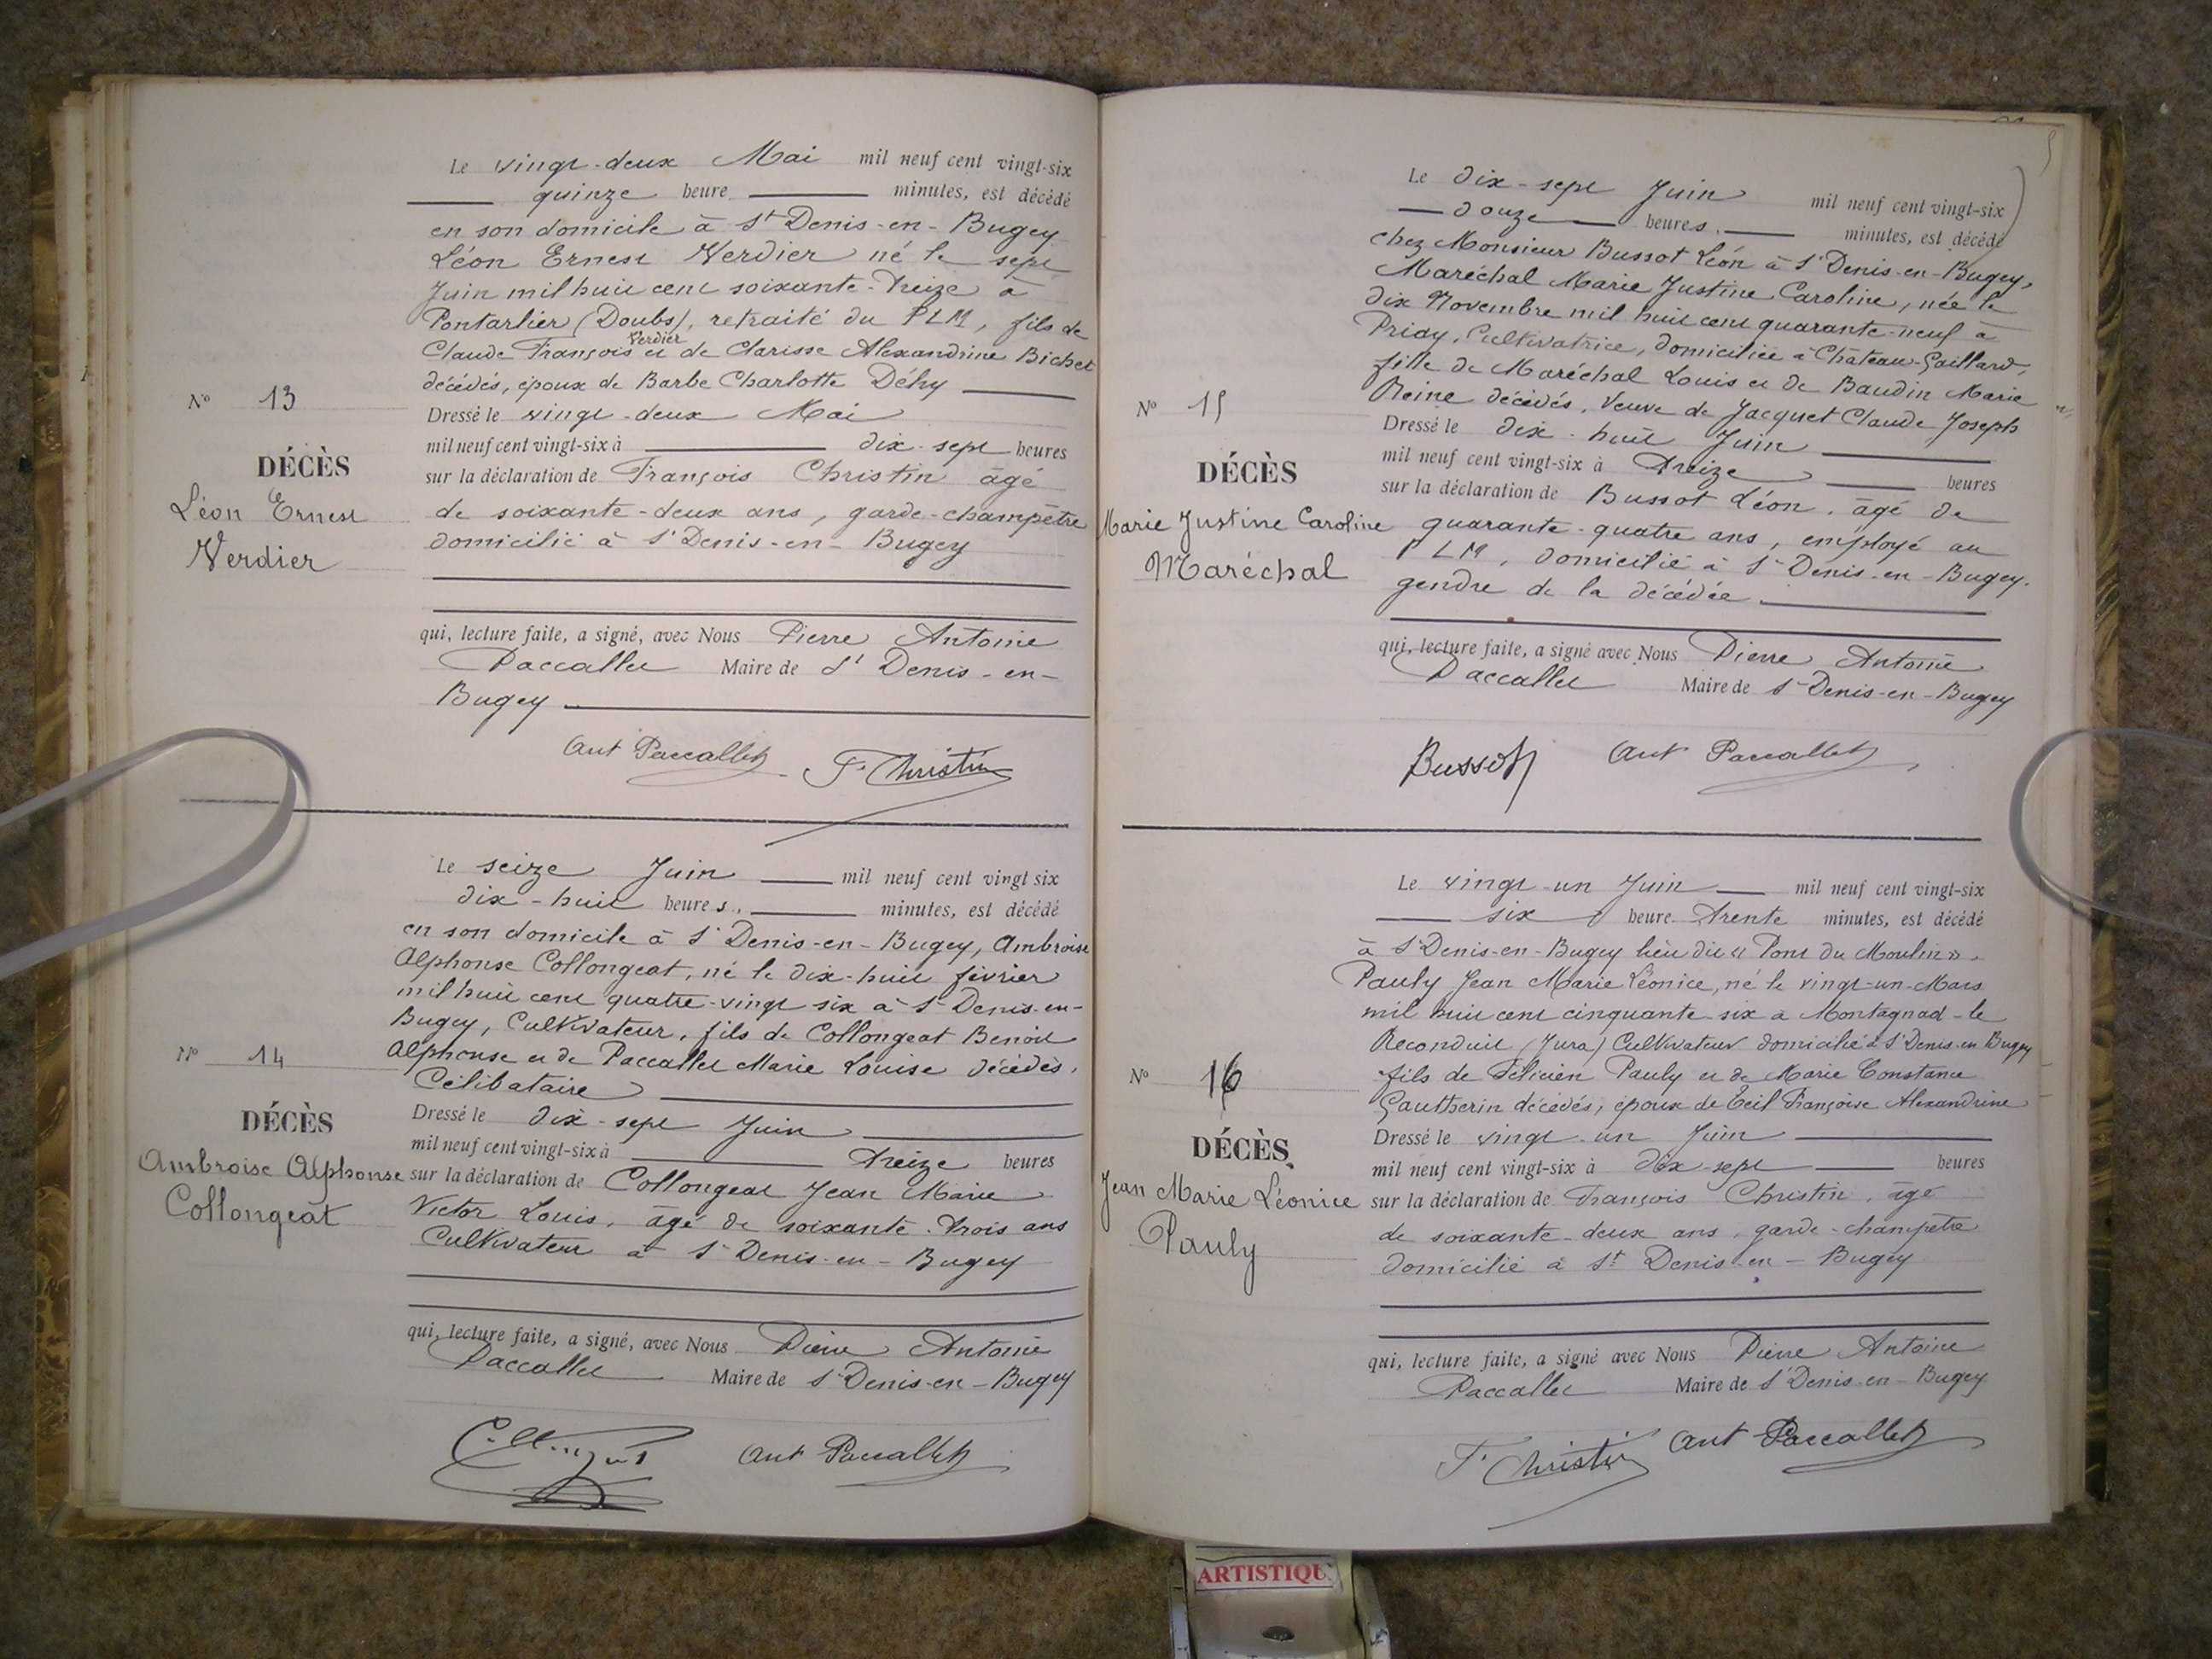 Le vingt-deux Mai mil neuf cent vingt-six
quinze heure minutes, est décédé
en son domicile à St Denis-en-Bugey
Léon Ernest Verdier né le sept
Juin mil huit cent soixante-treize à
Pontarlier (Doubs), retraité du PLM, fils de
Verdier
Claude François et de Clarisse Alexandrine Bichet
décédés, époux de Barbe Charlotte Déhy
Dressé le vingt-deux Mai
mil neuf cent vingt-six à dix-sept heures
sur la déclaration de François Christin âgé
de soixante-deux ans, garde-champêtre
domicilié à St Denis-en-Bugey
qui, lecture faite, a signé, avec Nous Pierre Antoine
Paccallet Maire de St Denis-en-
Bugey
Ant Paccallet F. Christin
No 13
DÉCÈS
Léon Ernest
Verdier
Le seize Juin mil neuf cent vingt six
dix-huit heures, minutes, est décédé
en son domicile à St Denis-en-Bugey, Ambroise
Alphonse Collongeat, né le dix-huit février
mil huit cent quatre-vingt six à St Denis-en-
Bugey, Cultivateur, fils de Collongeat Benoit
Alphonse et de Paccallet Marie Louise décédés,
Célibataire
Dressé le dix-sept Juin
mil neuf cent vingt-six à treize heures
sur la déclaration de Collongeat Jean Marie
Victor Louis, âgé de soixante-trois ans
Cultivateur à St Denis-en-Bugey
qui, lecture faite, a signé, avec Nous Pierre Antoine
Paccallet Maire de St Denis-en-Bugey
Collongeat Ant Paccallet
No 14
DÉCÈS
Ambroise Alphonse
Collongeat
Le dix-sept Juin mil neuf cent vingt-six
douze heures, minutes, est décédé
chez Monsieur Bussot Léon à St Denis-en-Bugey,
Maréchal Marie Justine Caroline, née le
dix Novembre mil huit cent quarante-neuf à
Priay, Cultivatrice, domiciliée à Château-Gaillard,
fille de Maréchal Louis et de Baudin Marie
Reine décédés, Veuve de Jacquet Claude Joseph
Dressé le dix-huit Juin
mil neuf cent vingt-six à treize heures
sur la déclaration de Bussot Léon, âgé de
quarante-quatre ans, employé au
PLM, domicilié à St Denis-en-Bugey.
gendre de la décédée
qui, lecture faite, a signé avec Nous Pierre Antoine
Paccallet Maire de St Denis-en-Bugey
Bussot Ant Paccallet
No 15
DÉCÈS
Marie Justine Caroline
Maréchal
Le vingt-un Juin mil neuf cent vingt-six
six heure trente minutes, est décédé
à St Denis-en-Bugey lieu dit « Pont du Moulin »,
Pauly Jean Marie Léonice, né le vingt-un-Mars
mil huit cent cinquante six à Montagnad-le
Reconduit (Jura) Cultivateur domicilié à St Denis-en Bugey
fils de Félicien Pauly et de Marie Constance
Gautherin décédés, époux de Teil Françoise Alexandrine
Dressé le vingt-un Juin
mil neuf cent vingt-six à dix-sept heures
sur la déclaration de François Christin, âgé
de soixante-deux ans, garde-champêtre
domicilié à St Denis-en-Bugey
qui, lecture faite, a signé avec Nous Pierre Antoine
Paccallet Maire de St Denis-en-Bugey
F. Christin Ant Paccallet
No 16
DÉCÈS
Jean Marie Léonice
Pauly
ARTISTIQU